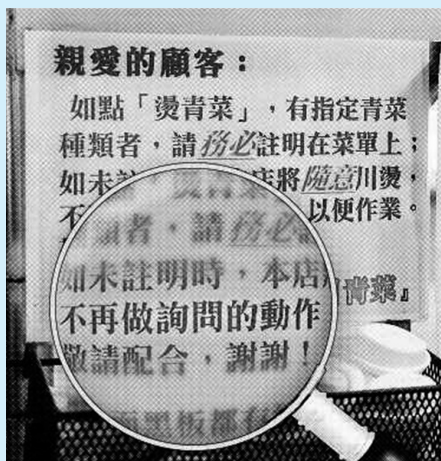 親愛的顧客：
如點「燙青菜」，有指定青菜
種類者，請務必註明在菜單上；
如未 店將隨意川燙，
不 以便作業。
類者，請務必
如未註明時，本店
青菜』
不再做詢問的動作
敬請配合，謝謝！
面黑板都有